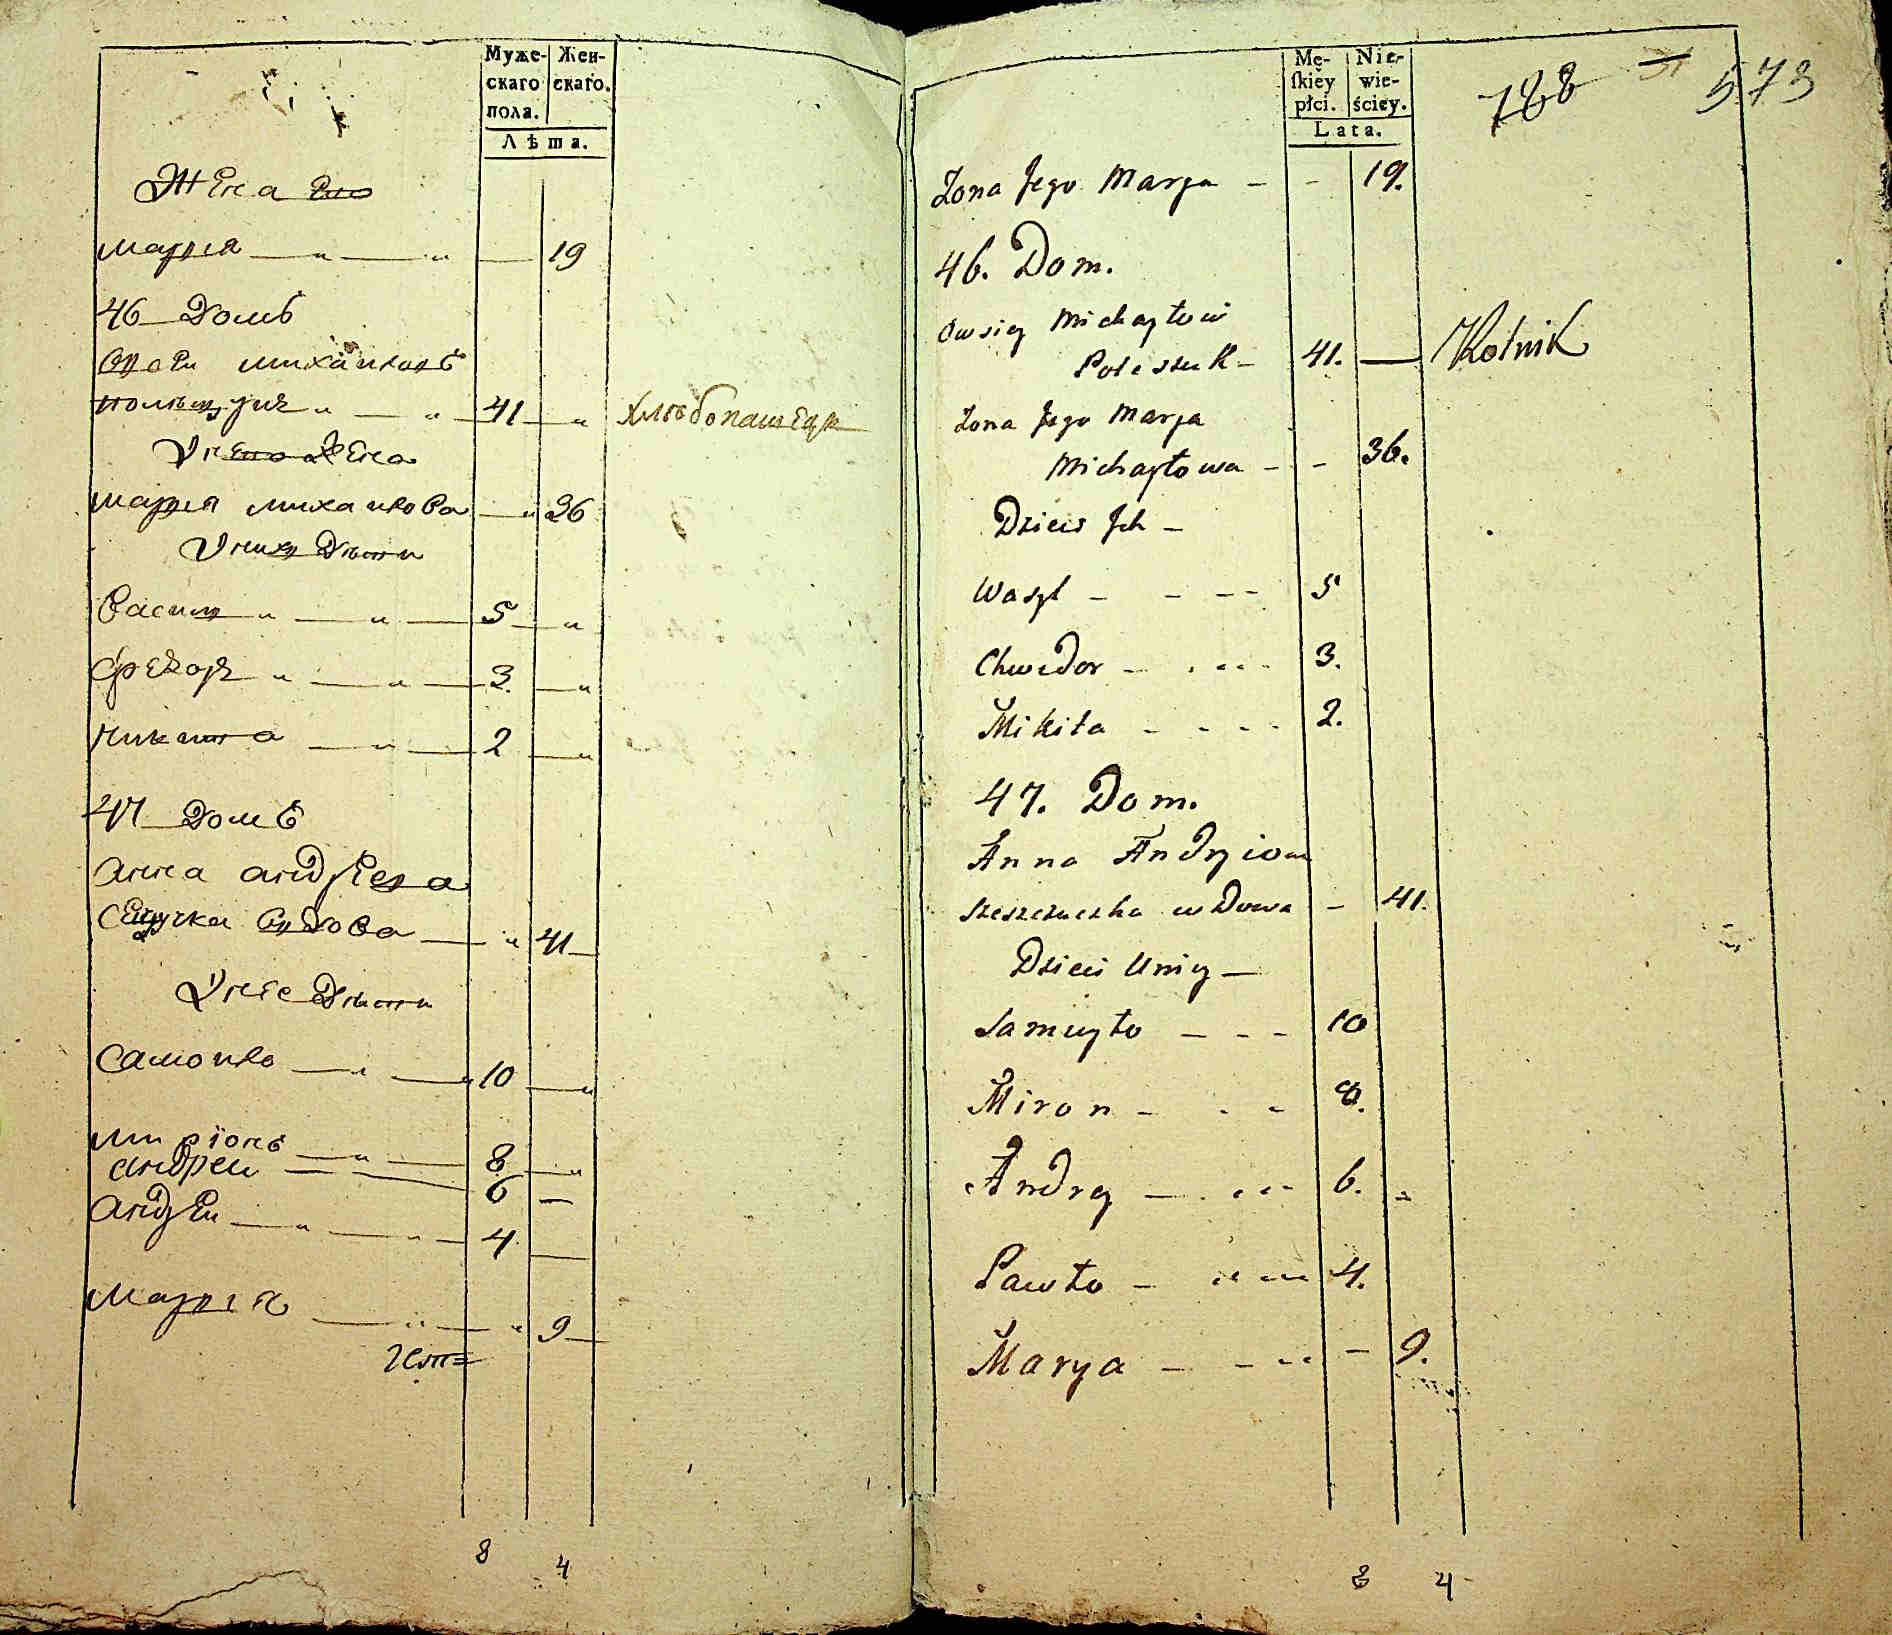 Муже-
скаго
пола.
Жен-
скаго.
Лѣта.
Жена Его
мария — „ — „ — 19
46 Домъ
Овсеи михаиловъ
полѣщукъ „ — „ — 41 — „ хлѣбопашецъ
У него Жена
мария михаилова — „ 36
У них Дѣти
Василь „ — „ — 5 — „
Федоръ „ — „ — 3. — „
Никита — „ — 2 — „
47 Домъ
анна андреева
вдова — „ 41 —
У нее Дѣти
Самоило — „ — „ 10 — „
миронъ — „ — 8 — „
андреи — 6 —
андреи — „ — „ — 4 —
Мария — „ — „ 9 —
8 4
Mę-
skiéy
płci.
Nie-
wie-
ściey.
Lata.
788
573
Zona Jego Marya - - 19.
46. Dom.
Owsiey Michayłow
Poleszuk - 41. — Rolnik
Zona Jego Marya
Michayłowa - - 36.
Dzieci Ich -
Wasyl - - - - 5
Chwedor - - - - 3.
Mikita - - - - 2.
47. Dom.
Anna Andryiowa
wdowa - 41.
Dzieci Uniey —
Samuyło - - - 10
Miron - - - 8.
Andrey - - - - 6. -
Pawło - - - - 4.
Marya - - - - - 9.
8 4